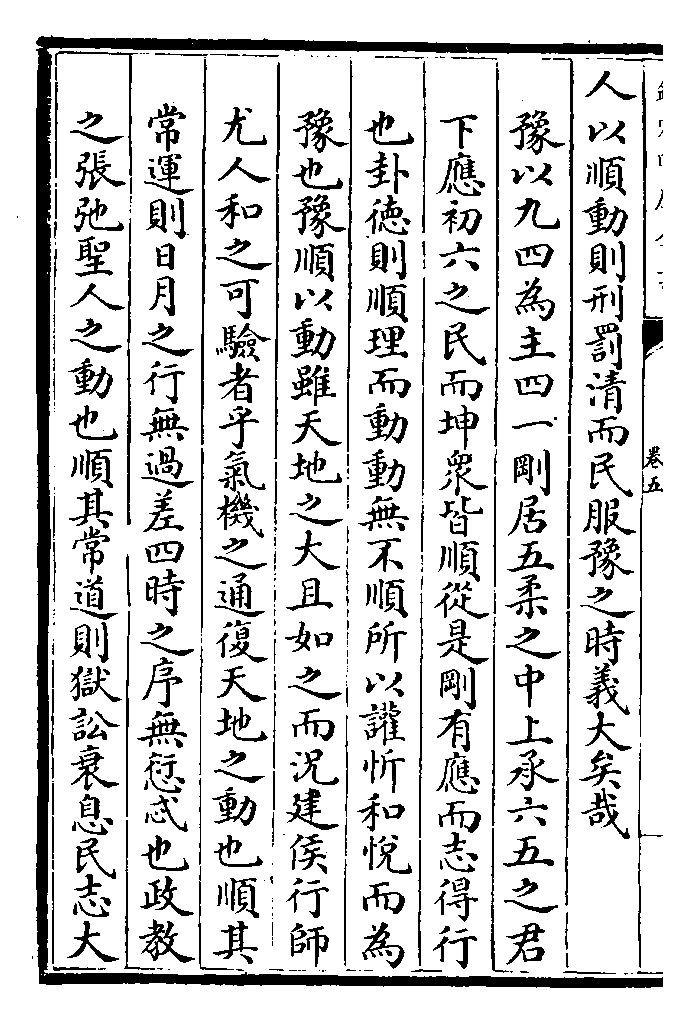 卷五
人以順動則刑罰清而民服豫之時義大矣哉
豫以九四為主四一剛居五柔之中上承六五之君
下應初六之民而坤衆皆順從是剛有應而志得行
也卦德則順理而動動無不順所以讙忻和悅而為
豫也豫順以動雖天地之大且如之而況建侯行師
尤人和之可驗者乎氣機之通復天地之動也順其
常運則日月之行無過差四時之序無愆忒也政教
之張弛聖人之動也順其常道則獄訟衰息民志大